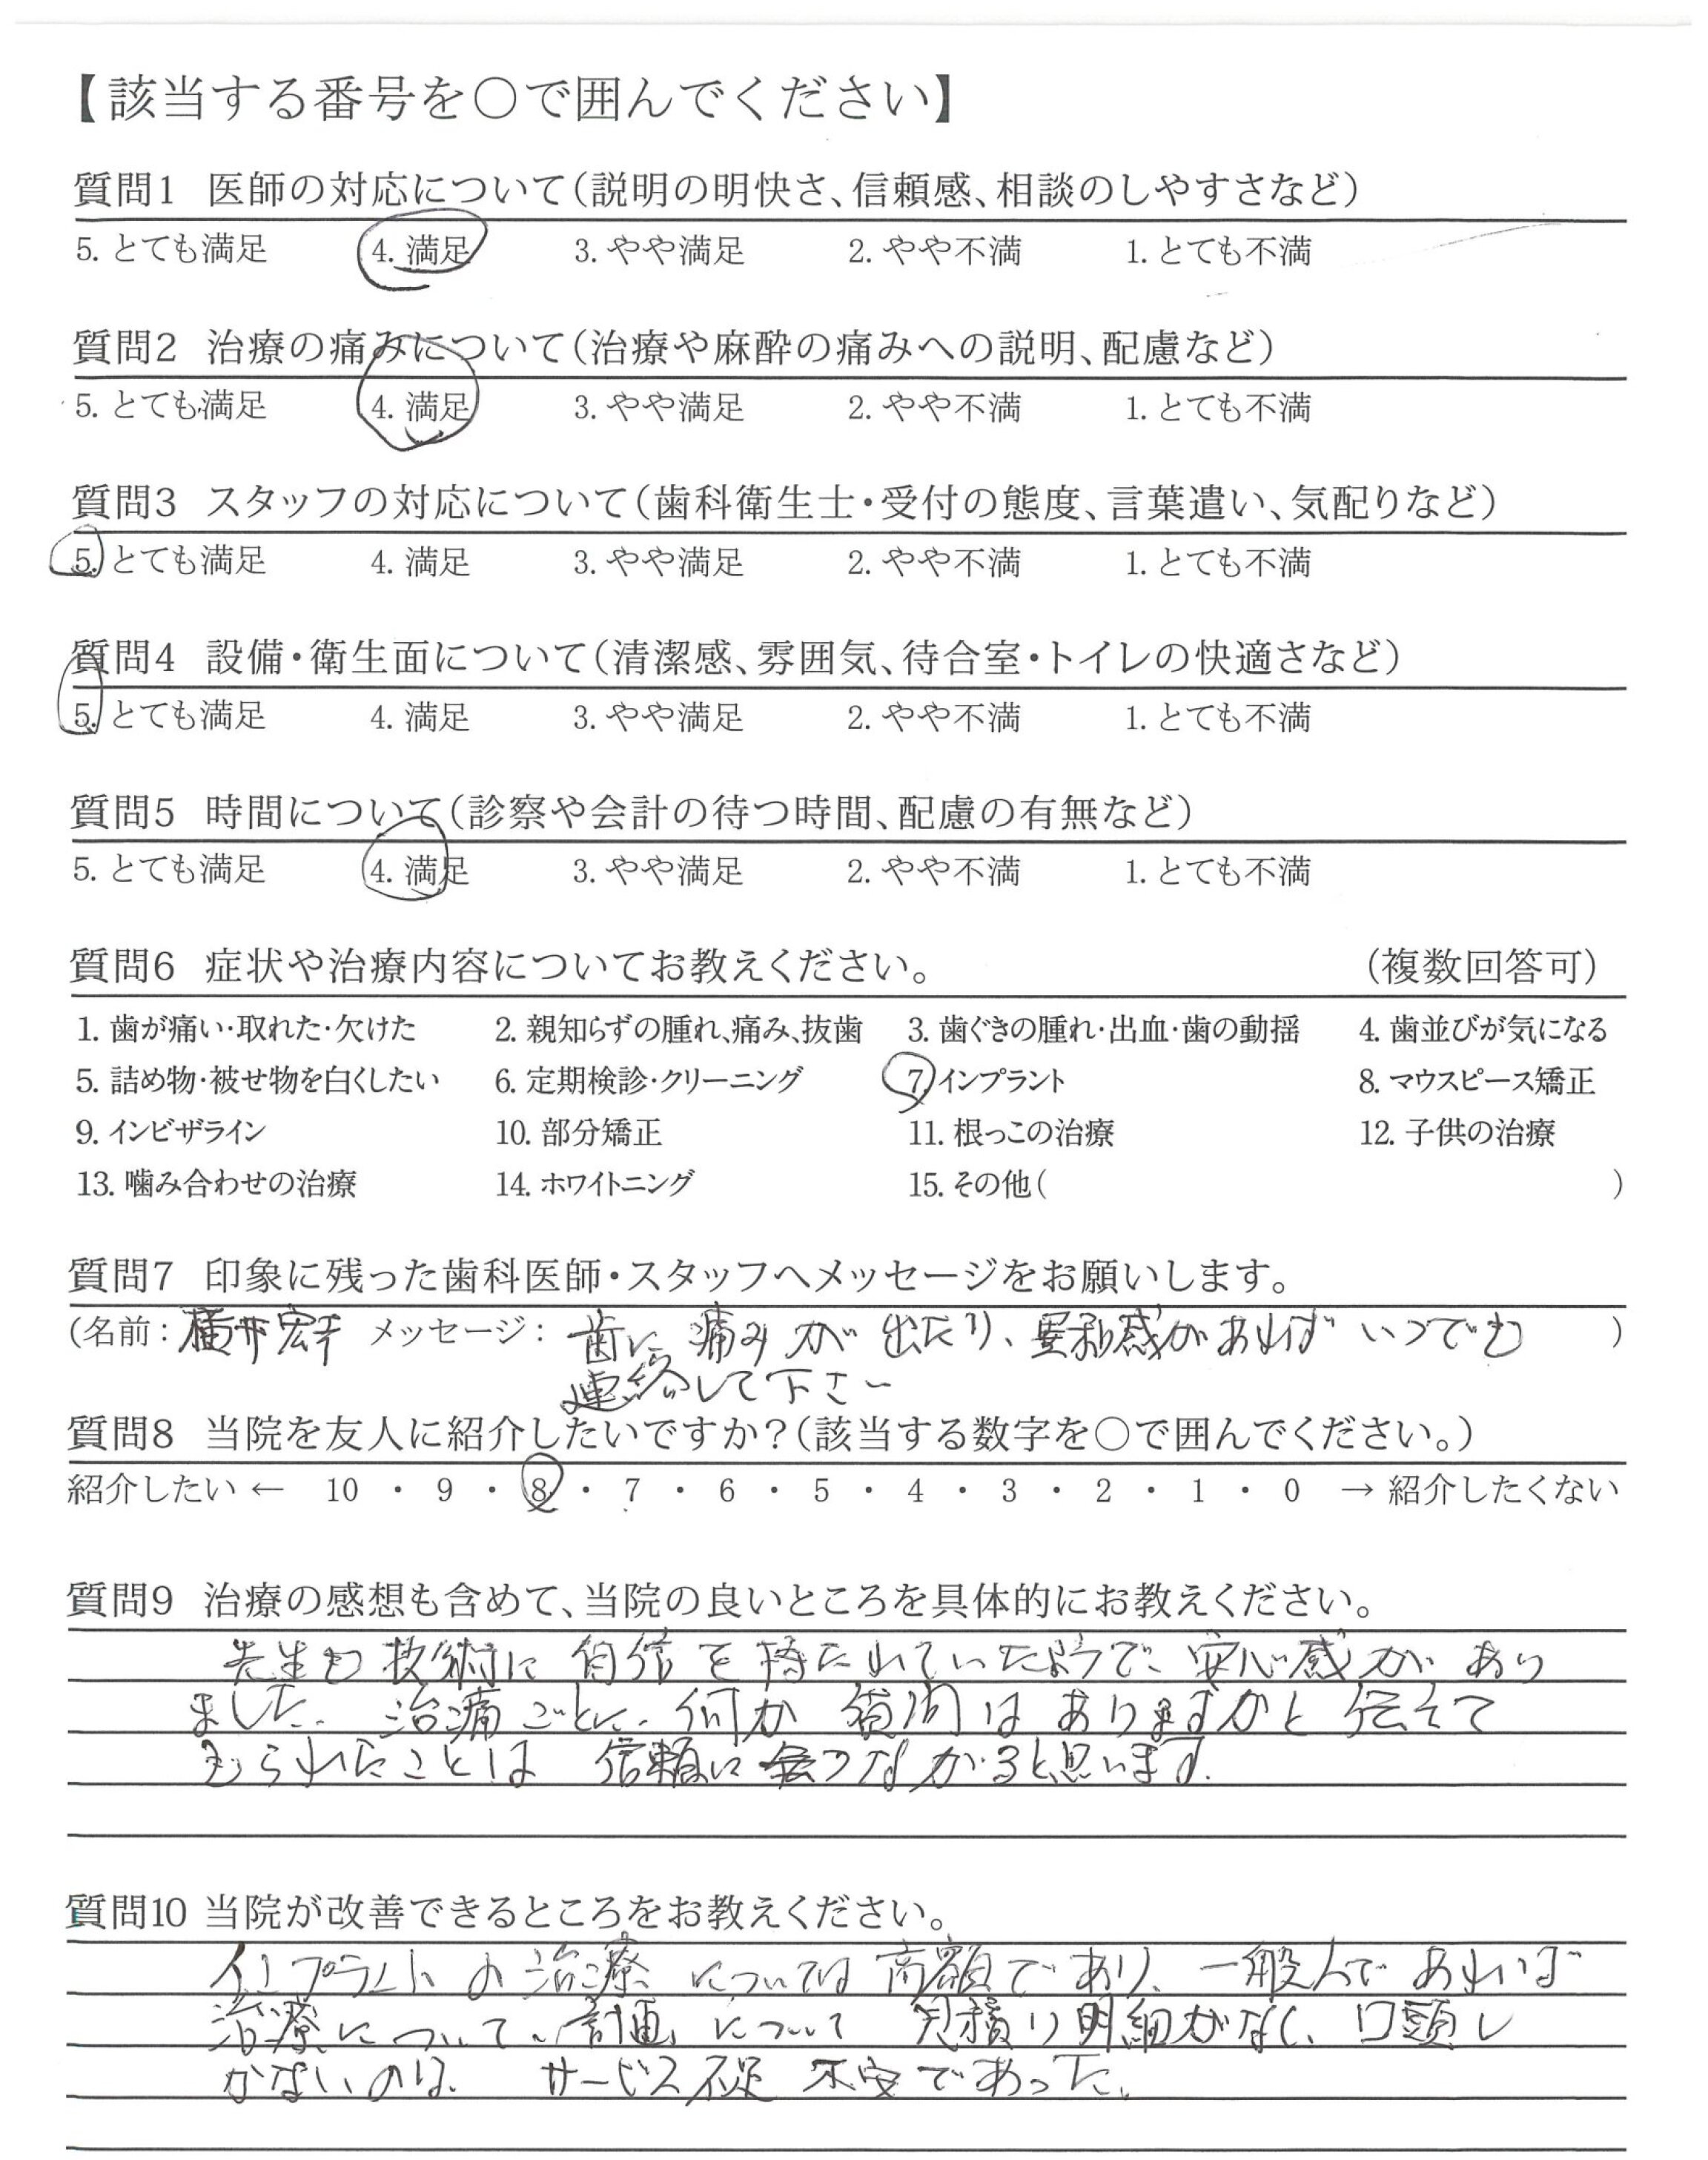 【該当する番号を○で囲んでください】
質問1 医師の対応について(説明の明快さ、信頼感、相談のしやすさなど)
5. とても満足 4. 満足 3. やや満足 2. やや不満 1. とても不満
質問2 治療の痛みについて(治療や麻酔の痛みへの説明、配慮など)
5. とても満足 4. 満足 3. やや満足 2. やや不満 1. とても不満
質問3 スタッフの対応について(歯科衛生士・受付の態度、言葉遣い、気配りなど)
5. とても満足 4. 満足 3. やや満足 2. やや不満 1. とても不満
質問4 設備・衛生面について(清潔感、雰囲気、待合室・トイレの快適さなど)
5. とても満足 4. 満足 3. やや満足 2. やや不満 1. とても不満
質問5 時間について(診察や会計の待つ時間、配慮の有無など)
5. とても満足 4. 満足 3. やや満足 2. やや不満 1. とても不満
質問6 症状や治療内容についてお教えください。 (複数回答可)
1. 歯が痛い・取れた・欠けた 2. 親知らずの腫れ、痛み、抜歯 3. 歯ぐきの腫れ・出血・歯の動揺 4. 歯並びが気になる
5. 詰め物・被せ物を白くしたい 6. 定期検診・クリーニング 7. インプラント 8. マウスピース矯正
9. インビザライン 10. 部分矯正 11. 根っこの治療 12. 子供の治療
13. 噛み合わせの治療 14. ホワイトニング 15. その他( )
質問7 印象に残った歯科医師・スタッフへメッセージをお願いします。
(名前: メッセージ: 歯に痛みが出たり、異和感があればいつでも )
連絡して下さー
質問8 当院を友人に紹介したいですか?(該当する数字を○で囲んでください。)
紹介したい ← 10 ・ 9 ・ 8 ・ 7 ・ 6 ・ 5 ・ 4 ・ 3 ・ 2 ・ 1 ・ 0 → 紹介したくない
質問9 治療の感想も含めて、当院の良いところを具体的にお教えください。
先生も技術に自信を持たれていたようで、安心感があり
ました。治療ごとに、何か質問はありますかと伝えて
もらられたことは 信頼に つながると思います。
質問10 当院が改善できるところをお教えください。
インプラントの治療については高額であり、一般人であれば
治療について、「計画」について 見積り明細がなく、口頭し
かないのは、サービス不足 不安であった。